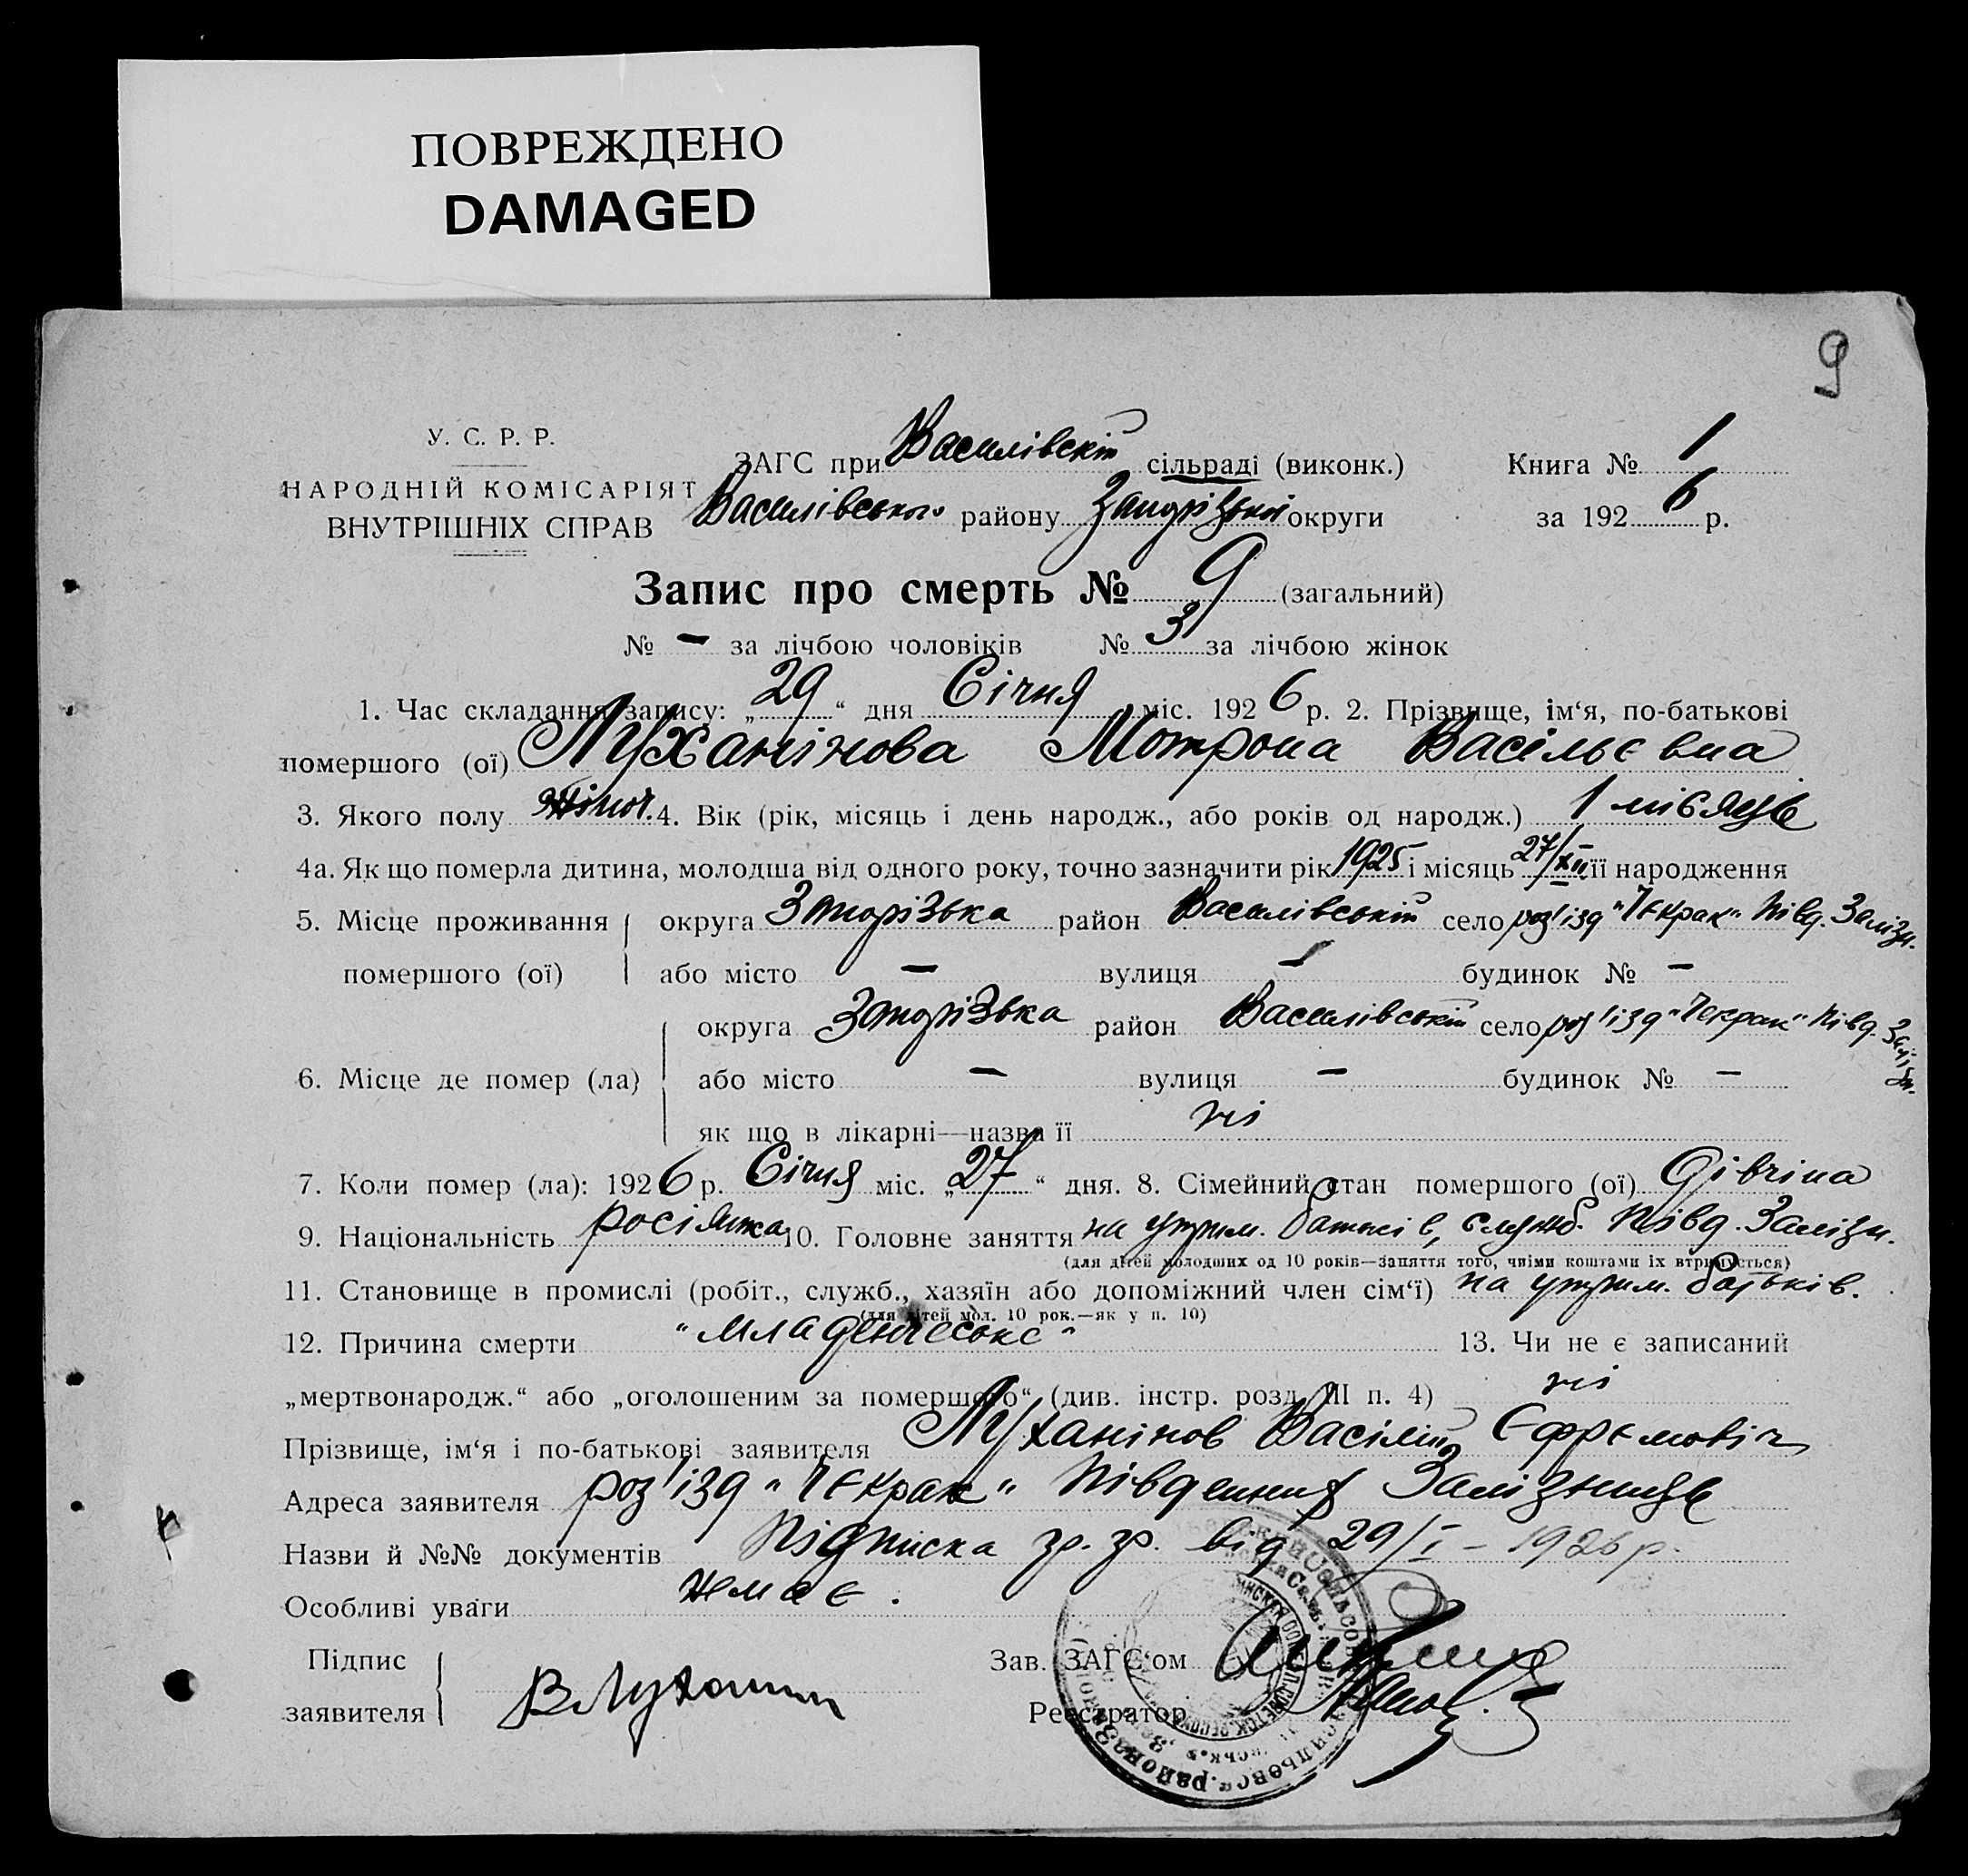 ПОВРЕЖДЕНО
DAMAGED
9
У. С. Р. Р.
НАРОДНІЙ КОМІСАРІЯТ
ВНУТРІШНІХ СПРАВ
ЗАГС при Василівскій сільраді (виконк.) Книга № 1
Василівського району Запорізької округи за 1926 р.
Запис про смерть № 9 (загальний)
№ — за лічбою чоловіків № 3 за лічбою жінок
1. Час складання запису: „29“ дня Січня міс. 1926 р. 2. Прізвище, ім‘я, по-батькові
помершого (ої) Луханінова Мотрона Васільєвна
3. Якого полу жіноч. 4. Вік (рік, місяць і день народж., або років од народж.) 1 місяць
4а. Як що померла дитина, молодша від одного року, точно зазначити рік 1925 і місяць 27/XII її народження
5. Місце проживання округа Запорізька район Василівській село роз'ізд "Чекрак" Півд. Залізн.
помершого (ої) або місто — вулиця — будинок № —
округа Запорізька район Василівській село роз'ізд "Чекрак" Півд. Залізн.
6. Місце де помер (ла) або місто — вулиця — будинок № —
як що в лікарні—назва її ні
7. Коли помер (ла): 1926 р. Січня міс. „27“ дня. 8. Сімейний стан помершого (ої) Дівчіна
9. Національність росіянка 10. Головне заняття на утрим. батьків, служб. Півд. Залізн.
(для дітей молодших од 10 років—заняття того, чиїми коштами їх втримується)
11. Становище в промислі (робіт., служб., хазяїн або допоміжний член сім‘ї) на утрим. батьків.
(для дітей мол. 10 рок.—як у п. 10)
12. Причина смерти "младенческое" 13. Чи не є записаний
„мертвонародж.“ або „оголошеним за помершого“ (див. інстр. розд. III п. 4) ні
Прізвище, ім‘я і по-батькові заявителя Луханінов Васілій Єфрємовіч
Адреса заявителя роз'ізд "Чекрак" Південних Залізниць
Назви й №№ документів Підписка гр. гр. від 29/I – 1926 р.
Особливі уваги немає.
Підпис
заявителя В Лухани
Зав. ЗАГС‘ом
Реєстратор